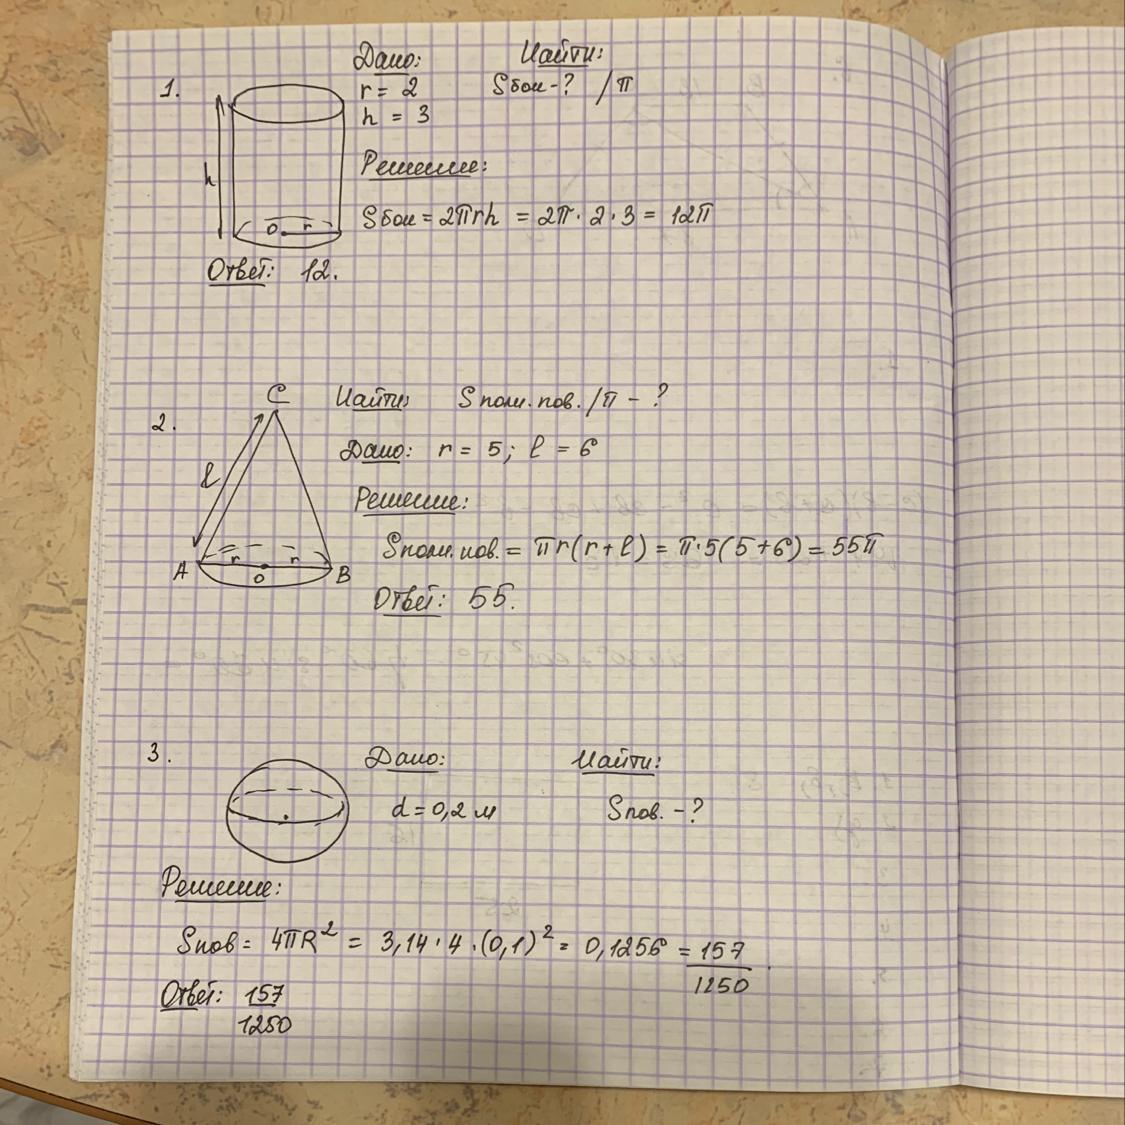 1.
Дано:
Найти:
r = 2
Sбок - ? / π
h = 3
h
Решение:
Sбок = 2πrh = 2π · 2 · 3 = 12π
O r
Ответ: 12.
2.
C
Найти: Sполн.пов. / π - ?
Дано: r = 5; l = 6
l
Решение:
Sполн.пов. = πr(r + l) = π·5(5+6) = 55π
A r O r B
Ответ: 55.
3.
Дано:
Найти:
d = 0,2 м
Sпов. - ?
Решение:
Sпов = 4πR² = 3,14 · 4 · (0,1)² = 0,1256 = 157/1250.
Ответ: 157/1250